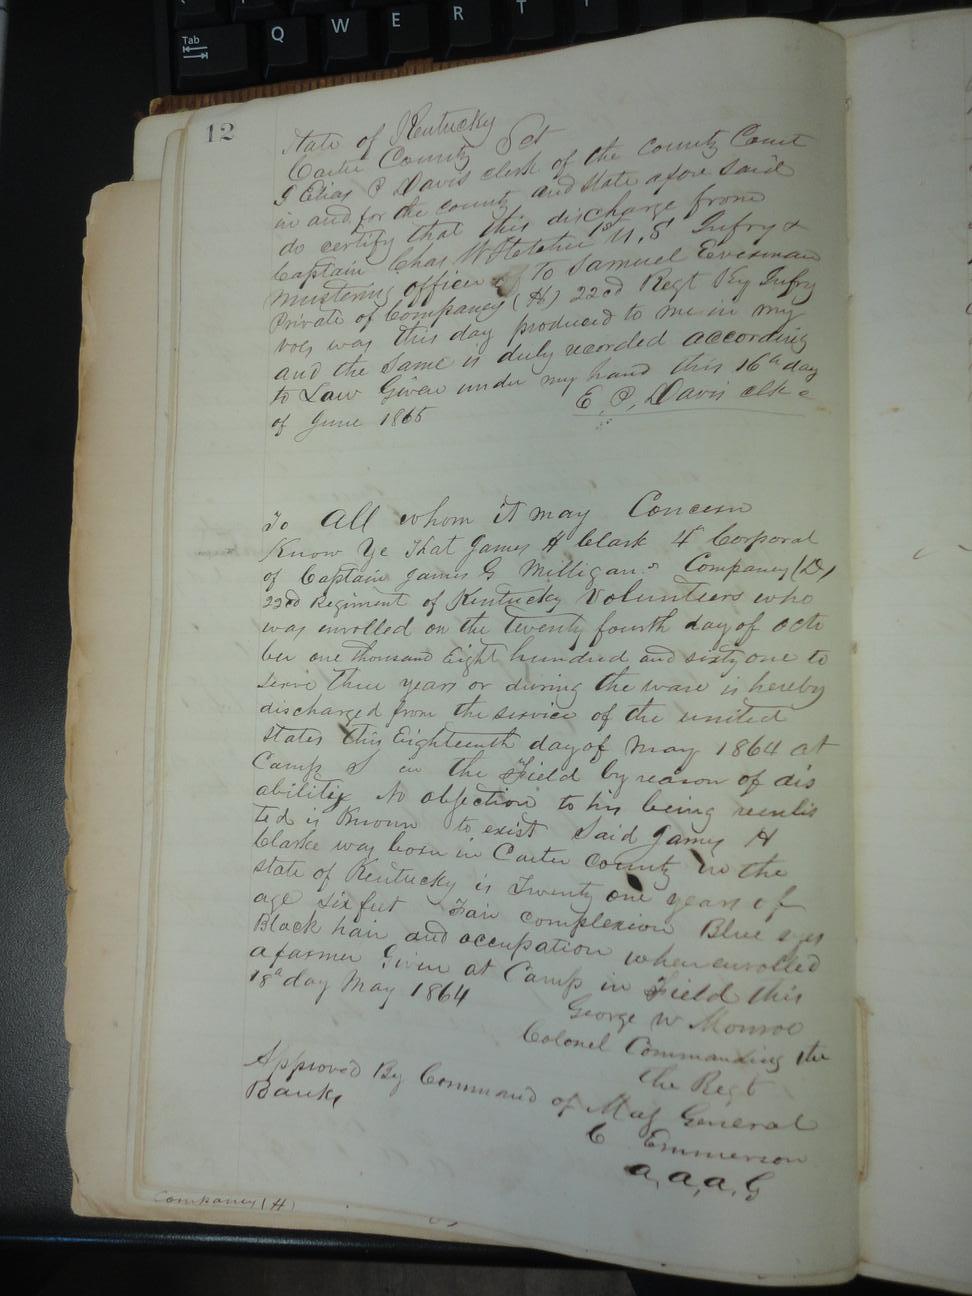 Tab Q W E R T
12
State of Kentucky
Carter County Sct
I Elias P Davis clerk of the county Court
in and for the county and state afore said
do certify that this discharge from
Captain Chas W 1st U.S Infry &
mustering officer to Samuel Everman
Private of Companey (H) 22nd Regt Ky Infry
vols was this day produced to me in my
and the same is duly recorded according
to Law Given under my hand this 16th day
of June 1865 E. P. Davis clk
To All whom it may Concern
Know Ye That James H Clark 4th Corporal
of Captain James G Milligan's Companey (D)
22nd Regiment of Kentucky Volunteers who
was enrolled on the twenty fourth day of octo
ber one thousand Eight hundred and sixty one to
serve three years or during the ware is hereby
discharged from the service of the united
states this Eighteenth day of May 1864 at
Camp in the Field by reason of dis
ability No objection to his being reenlis
ted is Known to exist Said James H
Clarke was born in Carter county in the
state of Kentucky is Twenty one years of
age six feet Fair complexion Blue eyes
Black hair and occupation when enrolled
a farmer Given at Camp in Field this
18th day May 1864
George W Monroe
Colonel Commanding the
the Regt
Approved By Command of Maj General
Banks
C Emmerson
a, a, a, G
Companey (H)